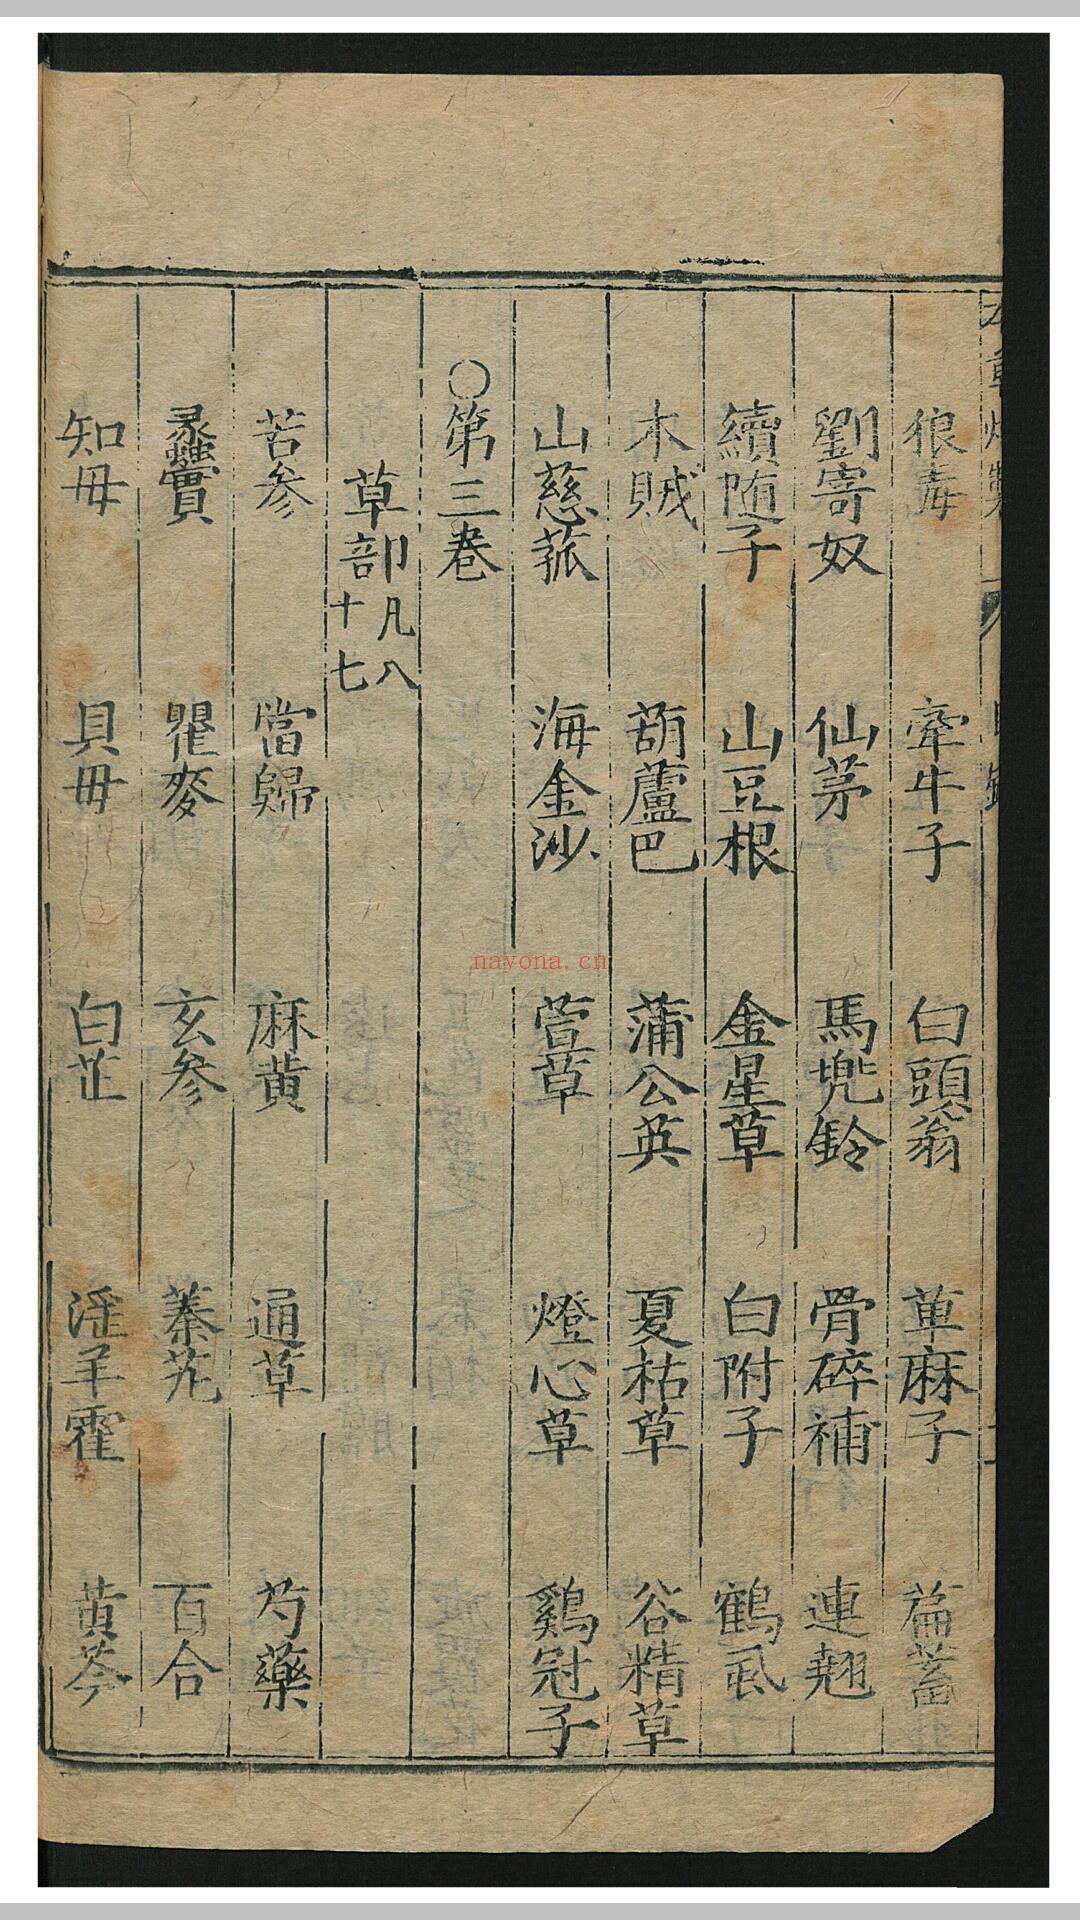 狼毒 牽牛子 白頭翁 萆麻子 萹蓄
劉寄奴 仙茅 馬兜鈴 骨碎補 連翹
續随子 山豆根 金星草 白附子 鶴虱
木賊 葫蘆巴 蒲公英 夏枯草 谷精草
山慈菰 海金沙 萱草 燈心草 鷄冠子
○第三巻
草部凡八十七
苦参 當歸 麻黄 通草 芍藥
蠡實 瞿麥 玄参 蓁艽 百合
知母 貝母 白芷 淫羊藿 黄芩
nayona.cn